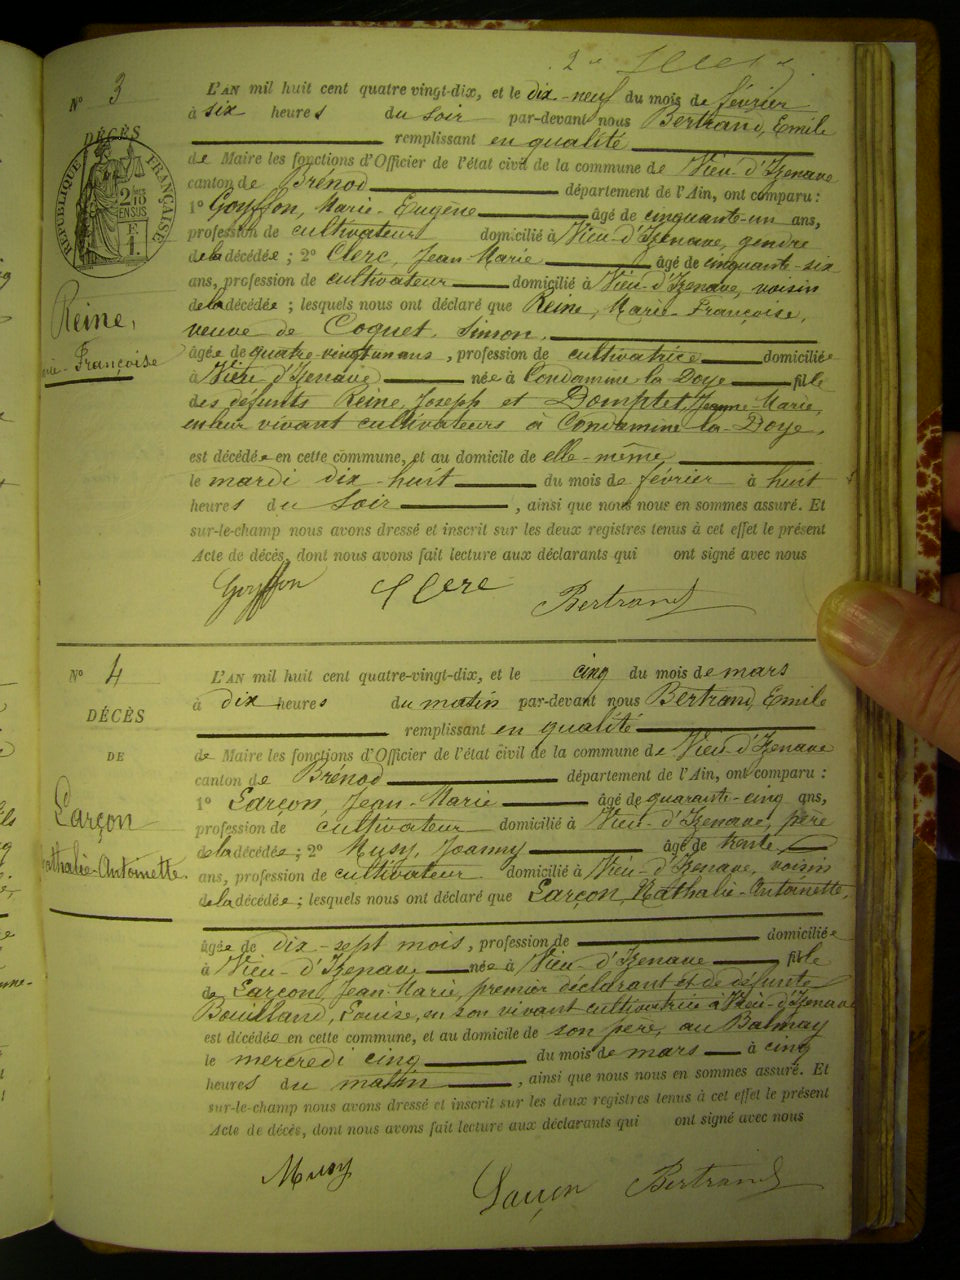 N° 3
DÉCÈS
RÉPUBLIQUE FRANÇAISE
2 10
EN SUS
F.
1.
Reine,
Françoise
L'AN mil huit cent quatre vingt-dix, et le dix-neuf du mois de février
à six heures du soir par-devant nous Bertrand, Emile
remplissant en qualité
de Maire les fonctions d'Officier de l'état civil de la commune de Vieu-d'Izenave
canton de Brénod département de l'Ain, ont comparu :
1° Goyffon, Marie-Eugène âgé de cinquante-un ans,
profession de cultivateur domicilié à Vieu-d'Izenave, gendre
de la décédée ; 2° Clerc, Jean-Marie âgé de cinquante-six
ans, profession de cultivateur domicilié à Vieu-d'Izenave, voisin
de la décédée ; lesquels nous ont déclaré que Reine, Marie-Françoise,
veuve de Coquet, Simon,
âgée de quatre-vingt un ans, profession de cultivatrice domiciliée
à Vieu d'Izenave née à Condamine-la-Doye fille
des défunts Reine, Joseph et Domptet, Jeanne-Marie,
en leur vivant cultivateurs à Condamine-la-Doye,
est décédée en cette commune, et au domicile de elle-même
le mardi dix huit du mois de février à huit
heures du soir, ainsi que nous nous en sommes assuré. Et
sur-le-champ nous avons dressé et inscrit sur les deux registres tenus à cet effet le présent
Acte de décès, dont nous avons fait lecture aux déclarants qui ont signé avec nous
Goyffon Clerc Bertrand
N° 4
DÉCÈS
DE
Larçon
Nathalie-Antoinette
L'AN mil huit cent quatre-vingt-dix, et le cinq du mois de mars
à dix heures du matin par-devant nous Bertrand, Emile
remplissant en qualité
de Maire les fonctions d'Officier de l'état civil de la commune de Vieu-d'Izenave
canton de Brénod département de l'Ain, ont comparu :
1° Larçon, Jean-Marie âgé de quarante-cinq ans,
profession de cultivateur domicilié à Vieu-d'Izenave, père
de la décédée ; 2° Musy, Joanny âgé de trente
ans, profession de cultivateur domicilié à Vieu-d'Izenave, voisin
de la décédée ; lesquels nous ont déclaré que Larçon, Nathalie-Antoinette,
âgée de dix-sept mois, profession de domiciliée
à Vieu-d'Izenave née à Vieu-d'Izenave fille
de Larçon, Jean-Marie, premier déclarant et de défunte
Bouilland, Louise, en son vivant cultivatrice à Vieu-d'Izenave
est décédée en cette commune, et au domicile de son père, au Balmay
le mercredi cinq du mois de mars à cinq
heures du matin, ainsi que nous nous en sommes assuré. Et
sur-le-champ nous avons dressé et inscrit sur les deux registres tenus à cet effet le présent
Acte de décès, dont nous avons fait lecture aux déclarants qui ont signé avec nous
Musy Larçon Bertrand